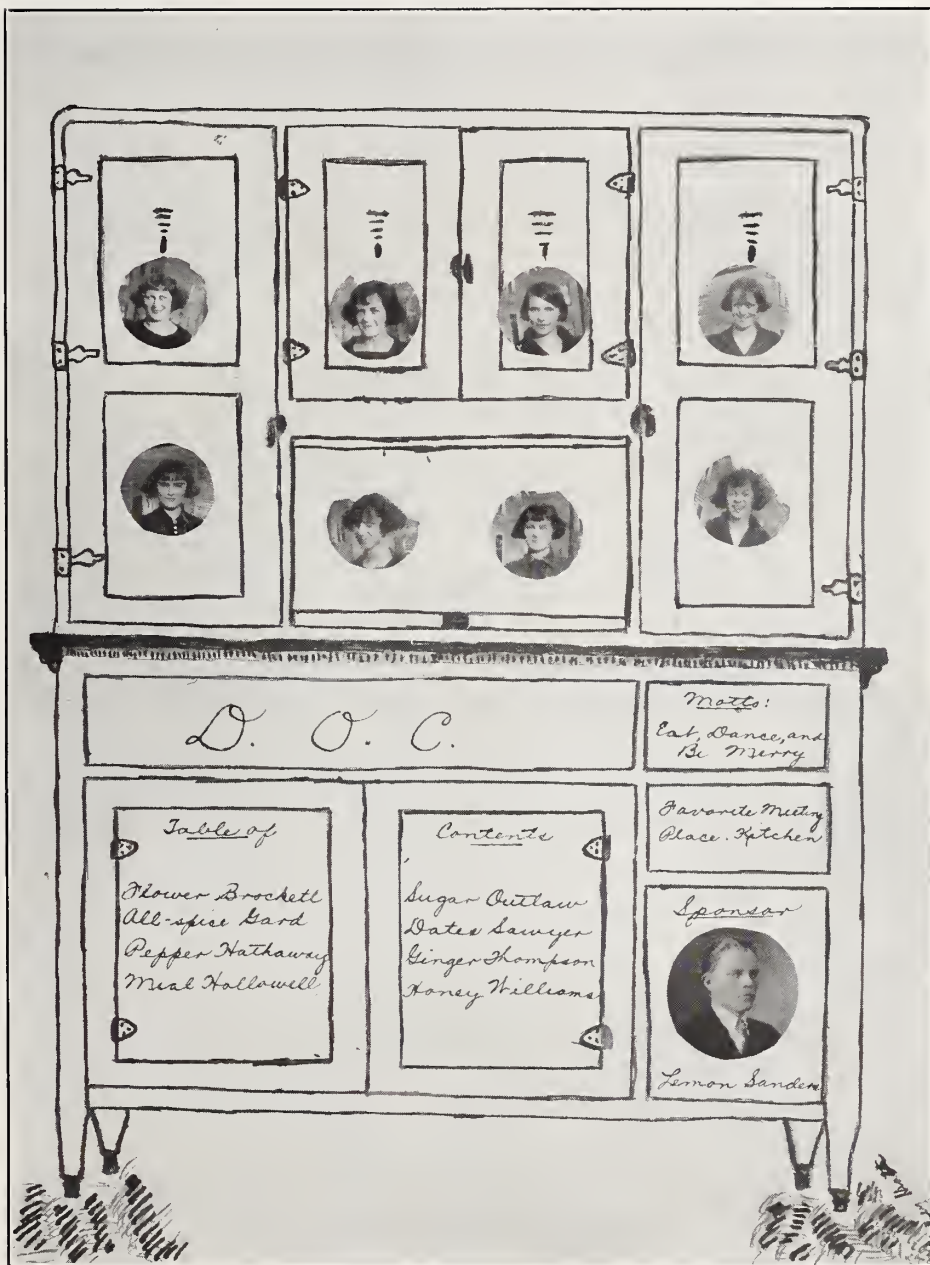 D. O. C.
Motto:
Eat, Dance, and
Be Merry
Favorite Meeting
Place. Kitchen
Table of
Flower Brockett
All-spice Gard
Pepper Hathaway
Meal Hollowell
Contents
Sugar Outlaw
Dates Sawyer
Ginger Thompson
Honey Williams
Sponsor
Lemon Sanders